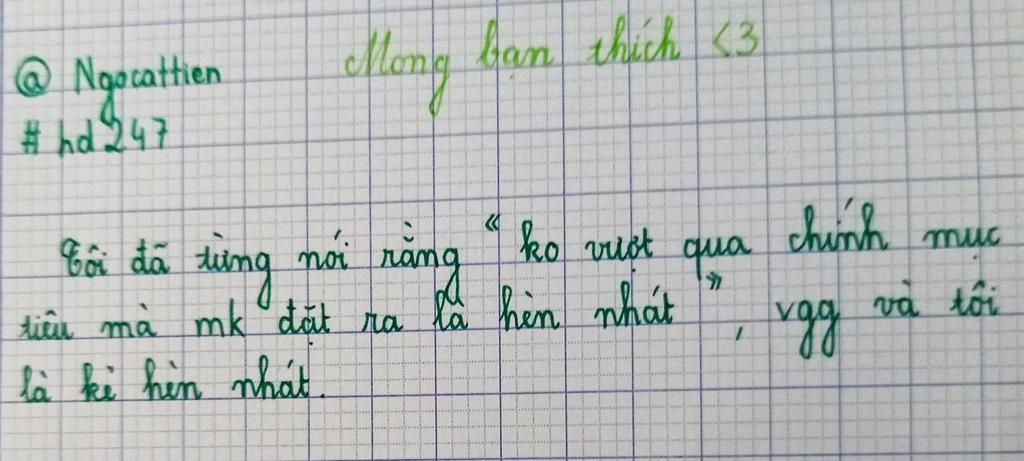 Mong bạn thích <3
@ Ngocattien
# hd247
Tôi đã từng nói rằng "ko vượt qua chính mục
tiêu mà mk đặt ra là hèn nhát", vgg và tôi
là kẻ hèn nhát.